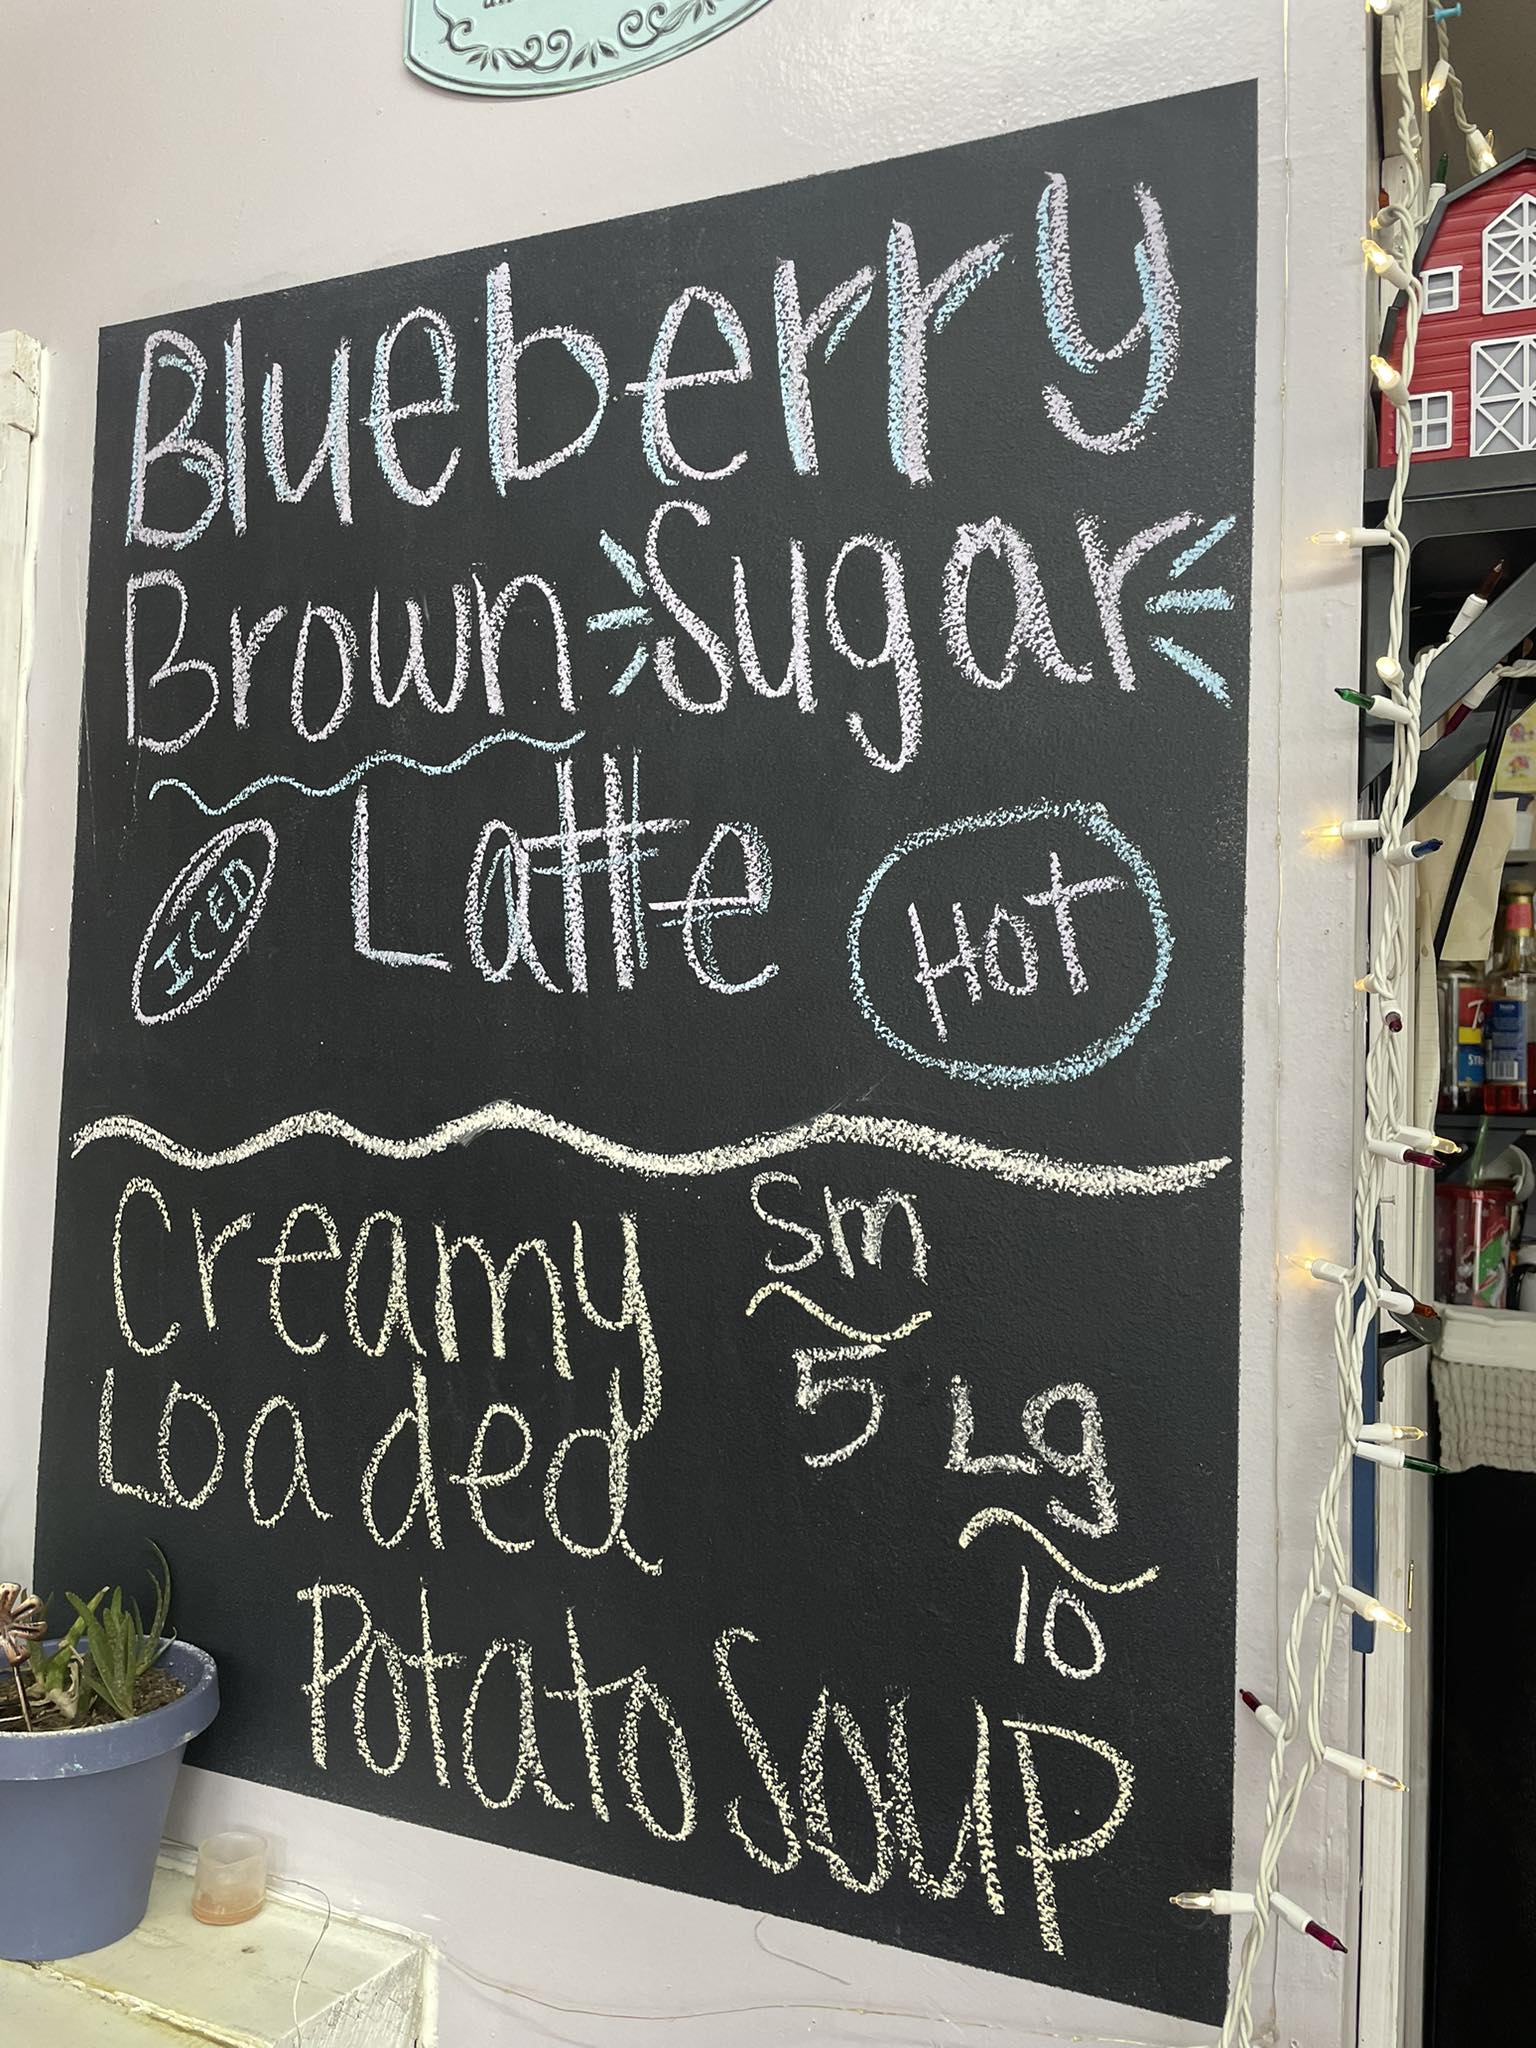 Blueberry
Brown Sugar
ICED Latte HOT
Creamy Sm
Loaded 5 Lg
10
Potato Soup